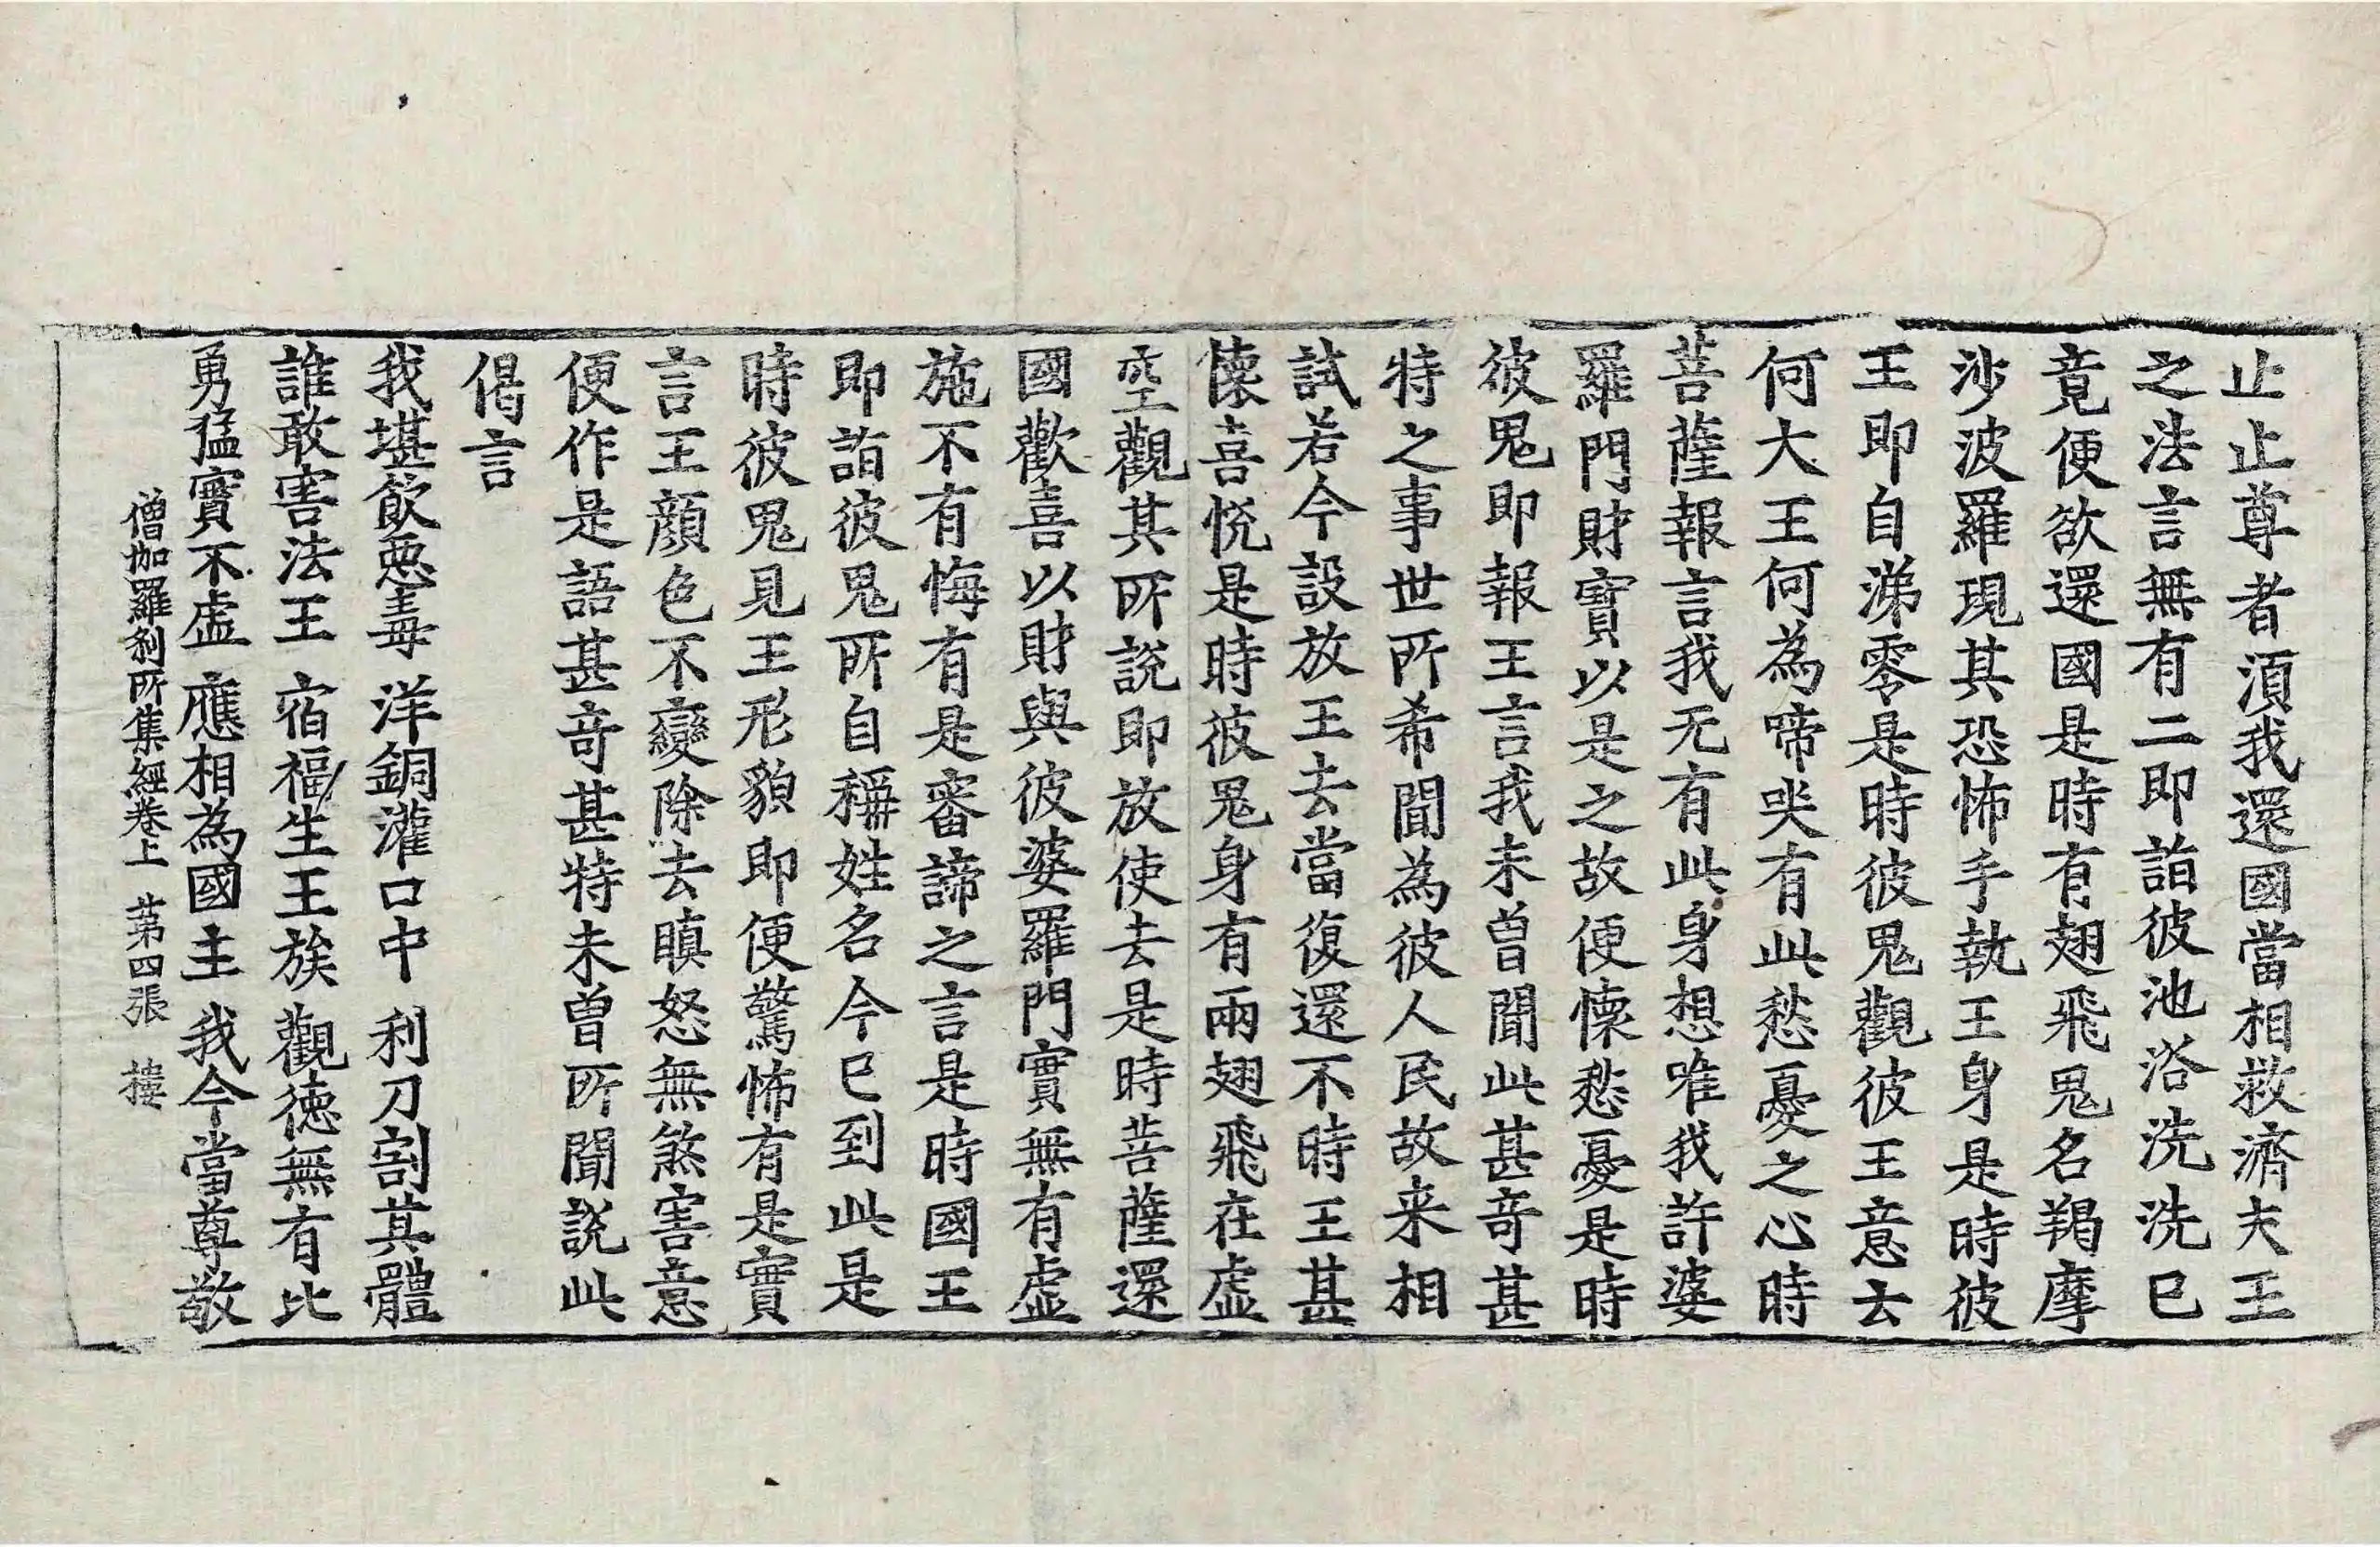 止止尊者湏我還國當相救濟夫王
之法言無有二即詣彼池浴洗洗已
竟便欲還國是時有翅飛鬼名羯摩
沙波羅現其恐怖手執王身是時彼
王即自涕零是時彼鬼觀彼王意去
何大王何為啼哭有此愁憂之心時
菩薩報言我无有此身想唯我許婆
羅門財寶以是之故便懷愁憂是時
彼鬼即報王言我未曾聞此甚奇甚
特之事世所希聞為彼人民故来相
試若今設放王去當復還不時王甚
懷喜悅是時彼鬼身有兩翅飛在虛
空觀其所說即放使去是時菩薩還
國歡喜以財與彼婆羅門實無有虛
施不有悔有是審諦之言是時國王
即詣彼鬼所自稱姓名今已到此是
時彼鬼見王形貌即便驚怖有是實
言王顏色不變除去瞋怒無煞害意
便作是語甚奇甚特未曾所聞說此
偈言
我堪飲惡毒 洋銅灌口中 利刀割其體
誰敢害法王 宿福生王族 觀德無有比
勇猛實不虛 應相為國主 我今當尊敬
僧伽羅刹所集經卷上 苐四張 樓